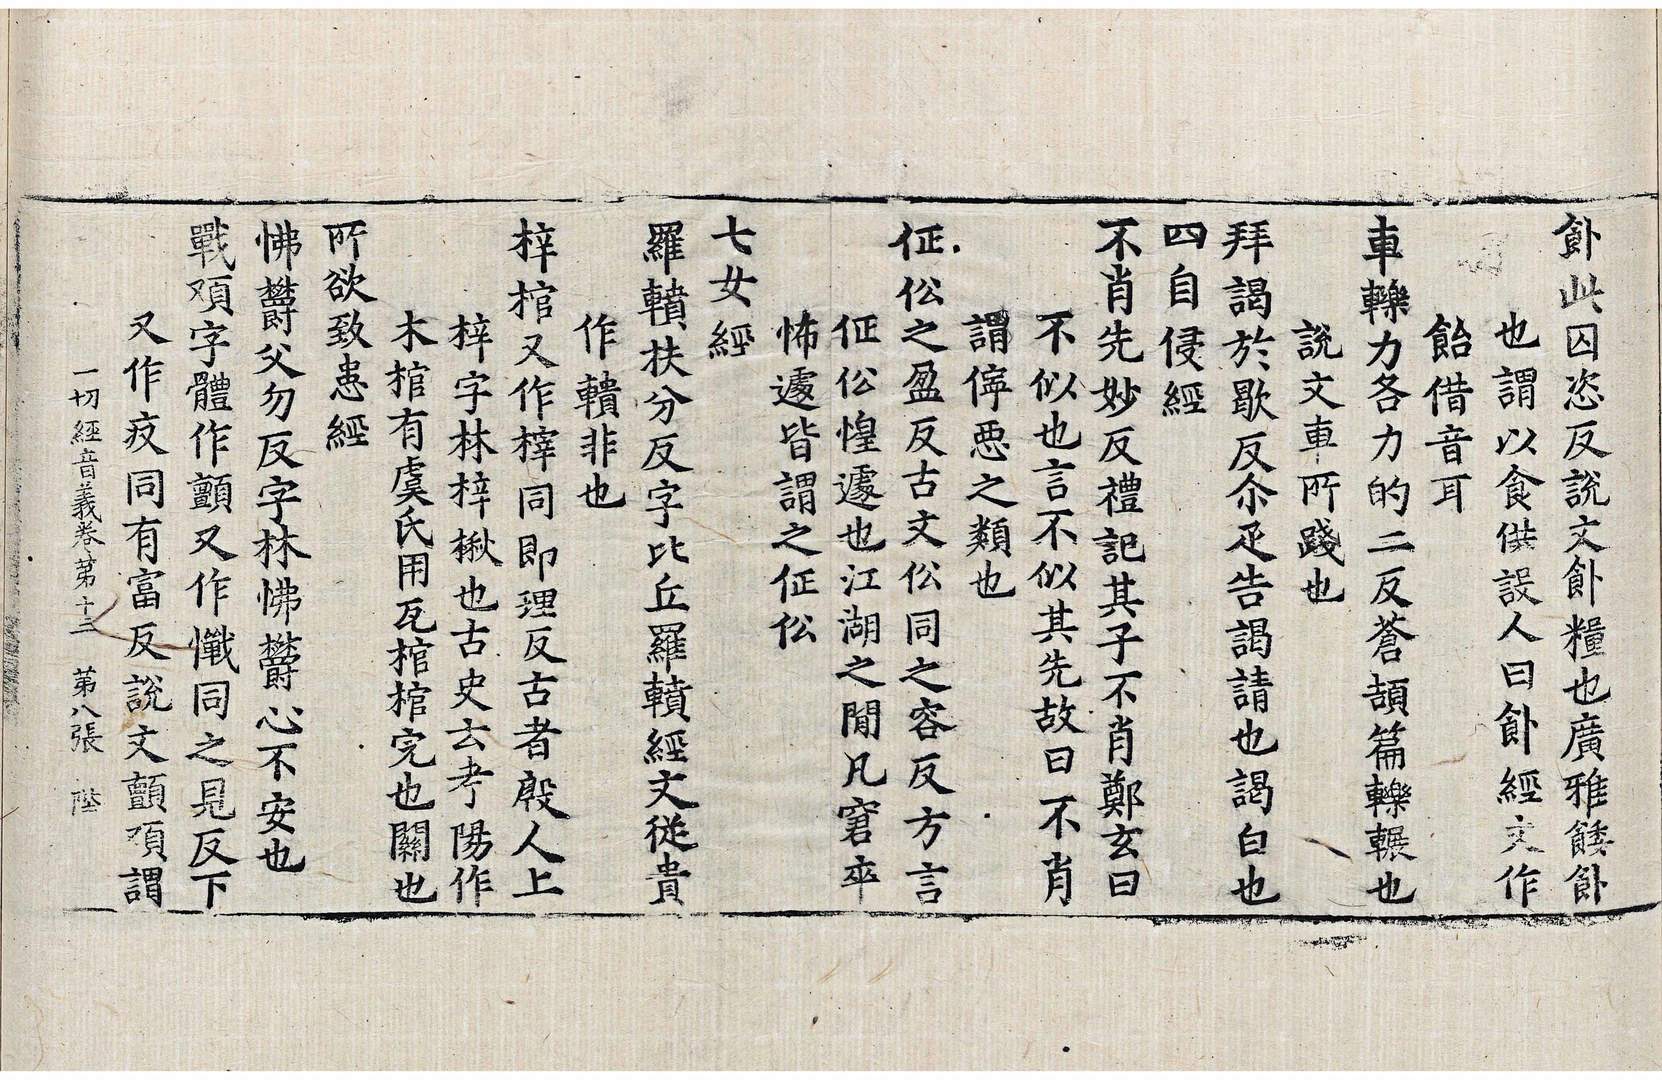 飤此囚恣反說文飤糧也廣雅餧飤
也謂以食供設人曰飤經文作
飴借音耳
車轢力各力的二反蒼頡篇轢輾也
說文車所踐也
拜謁於歇反尒疋告謁請也謁白也
四自侵經
不肖先妙反禮記其子不肖鄭玄曰
不似也言不似其先故曰不肖
謂儜惡之類也
佂伀之盈反古文伀同之容反方言
佂伀惶遽也江湖之閒凡窘卒
怖遽皆謂之佂伀
七女經
羅轒扶分反字比丘羅轒經文從貴
作䡺非也
梓棺又作榟同即理反古者殷人上
梓字林梓楸也古史云考陽作
木棺有虞氏用瓦棺棺完也關也
所欲致患經
怫欝父勿反字林怫欝心不安也
戰頄字體作顫又作懺同之見反下
又作疫同有富反說文顫頄謂
一切經音義卷第十三 第八張 陛